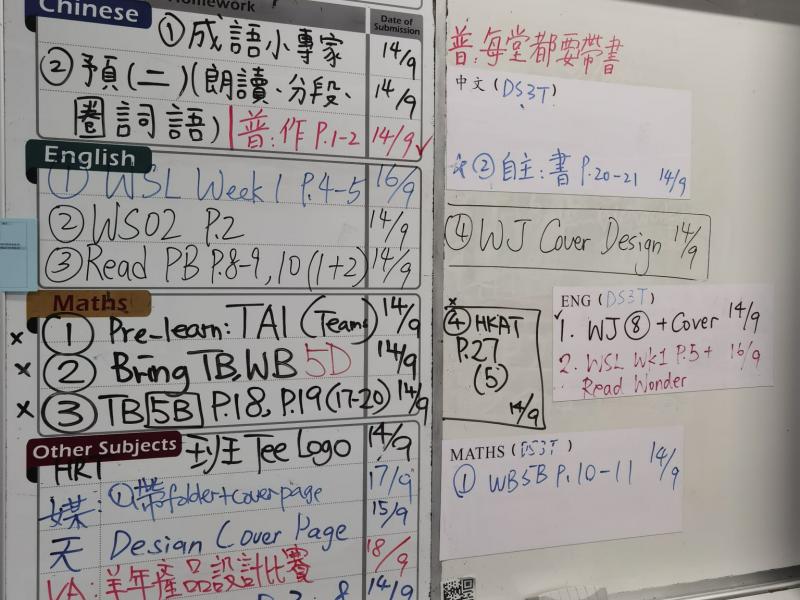 Homework
Date of Submission
Chinese
① 成語小專家 14/9
② 預(二)(朗讀、分段、 14/9
圈詞語) 普:作 P.1-2 14/9 ✓
English
① WSL Week 1 P.4-5 16/9
② WS02 P.2 14/9
③ Read PB P.8-9, 10 (1+2) 14/9
Maths
x ① Pre-learn: TA1 (Teams) 14/9
x ② Bring TB, WB 5D 14/9
x ③ TB 5B P.18, P.19 (17-20) 14/9
Other Subjects
ART 班 Tee Logo 14/9
媒: ① 帶 folder + cover page 17/9
天 Design Cover Page 15/9
VA: 羊年產品設計比賽 18/9
14/9
普:每堂都要帶書
中文 (DS3T)
② 自主:書 P.20-21 14/9
④ WJ Cover Design 14/9
x
④ HKAT
P.27
(5)
14/9
ENG (DS3T)
✓
1. WJ ⑧ + Cover 14/9
2. WSL Wk1 P.5 + 16/9
Read Wonder
MATHS (DS3T)
① WB5B P.10-11 14/9